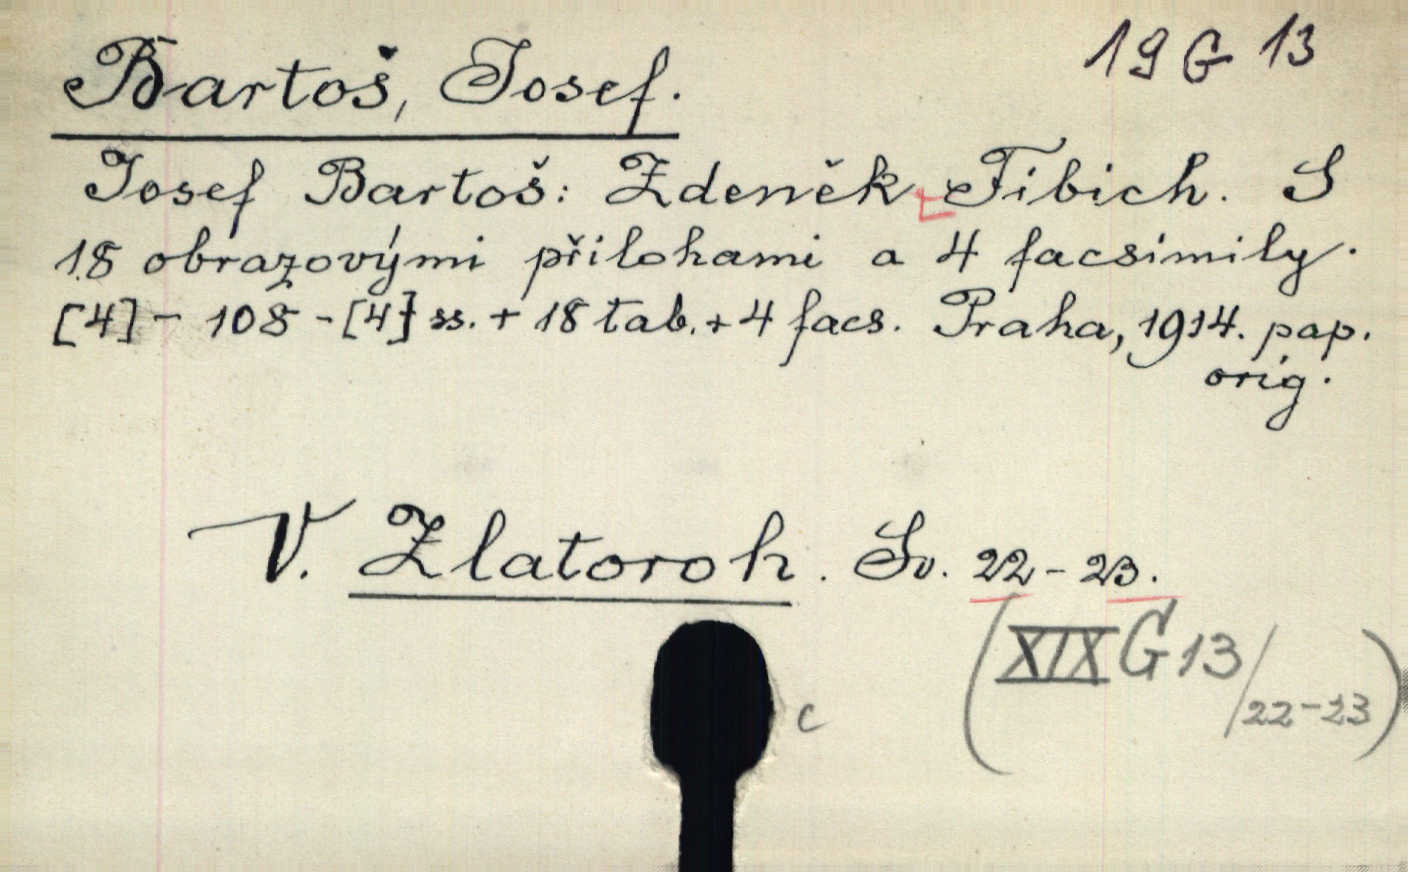 19 G 13
Bartoš, Josef.
Josef Bartoš: Zdeněk Fibich. S
18 obrazovými přílohami a 4 facsimily.
[4] - 108 - [4] ss. + 18 tab. + 4 facs. Praha, 1914. pap.
orig.
V. Zlatoroh. Sv. 22 - 23.
(XIX G 13/22-23)
c